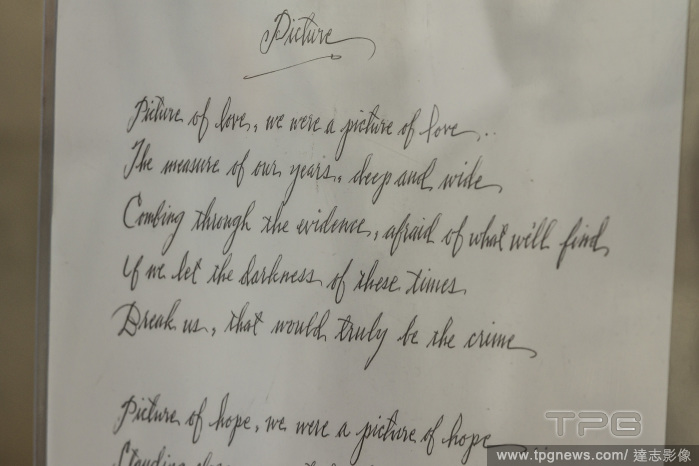 Picture
Picture of love, we were a picture of love..
The measure of our years, deep and wide
Combing through the evidence, afraid of what we'll find
If we let the darkness of these times
Break us, that would truly be the crime
Picture of hope, we were a picture of hope
Standing
TPG
www.tpgnews.com/達志影像